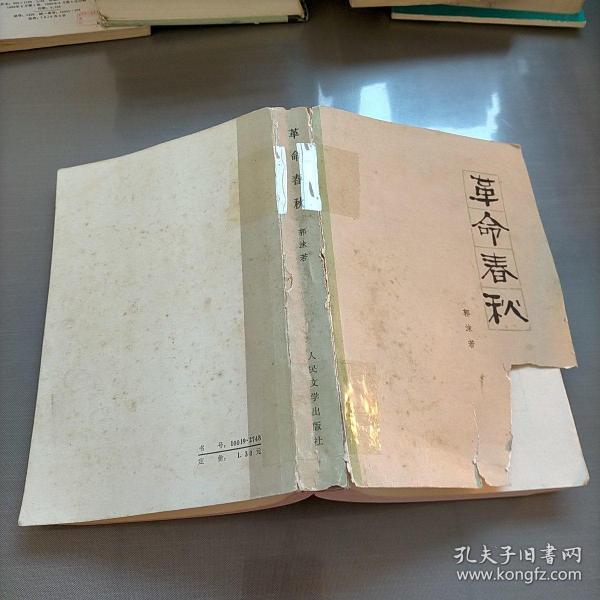 革命春秋
郭沫若
革命春秋
郭沫若
人民文学出版社
书号：10019·2748
定价：1.30元
孔夫子旧书网
www.kongfz.com